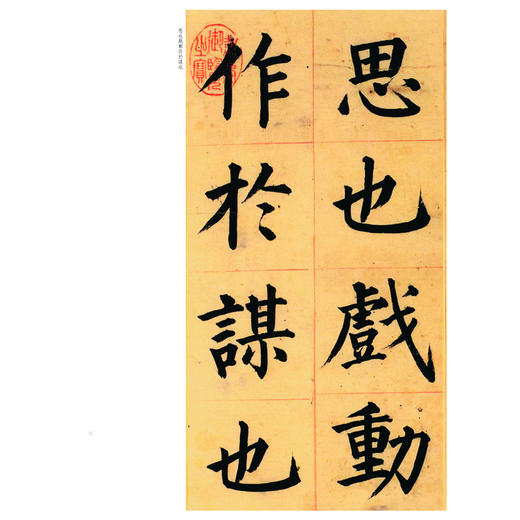 思也戲動
作於謀也
思也戲動作於謀也